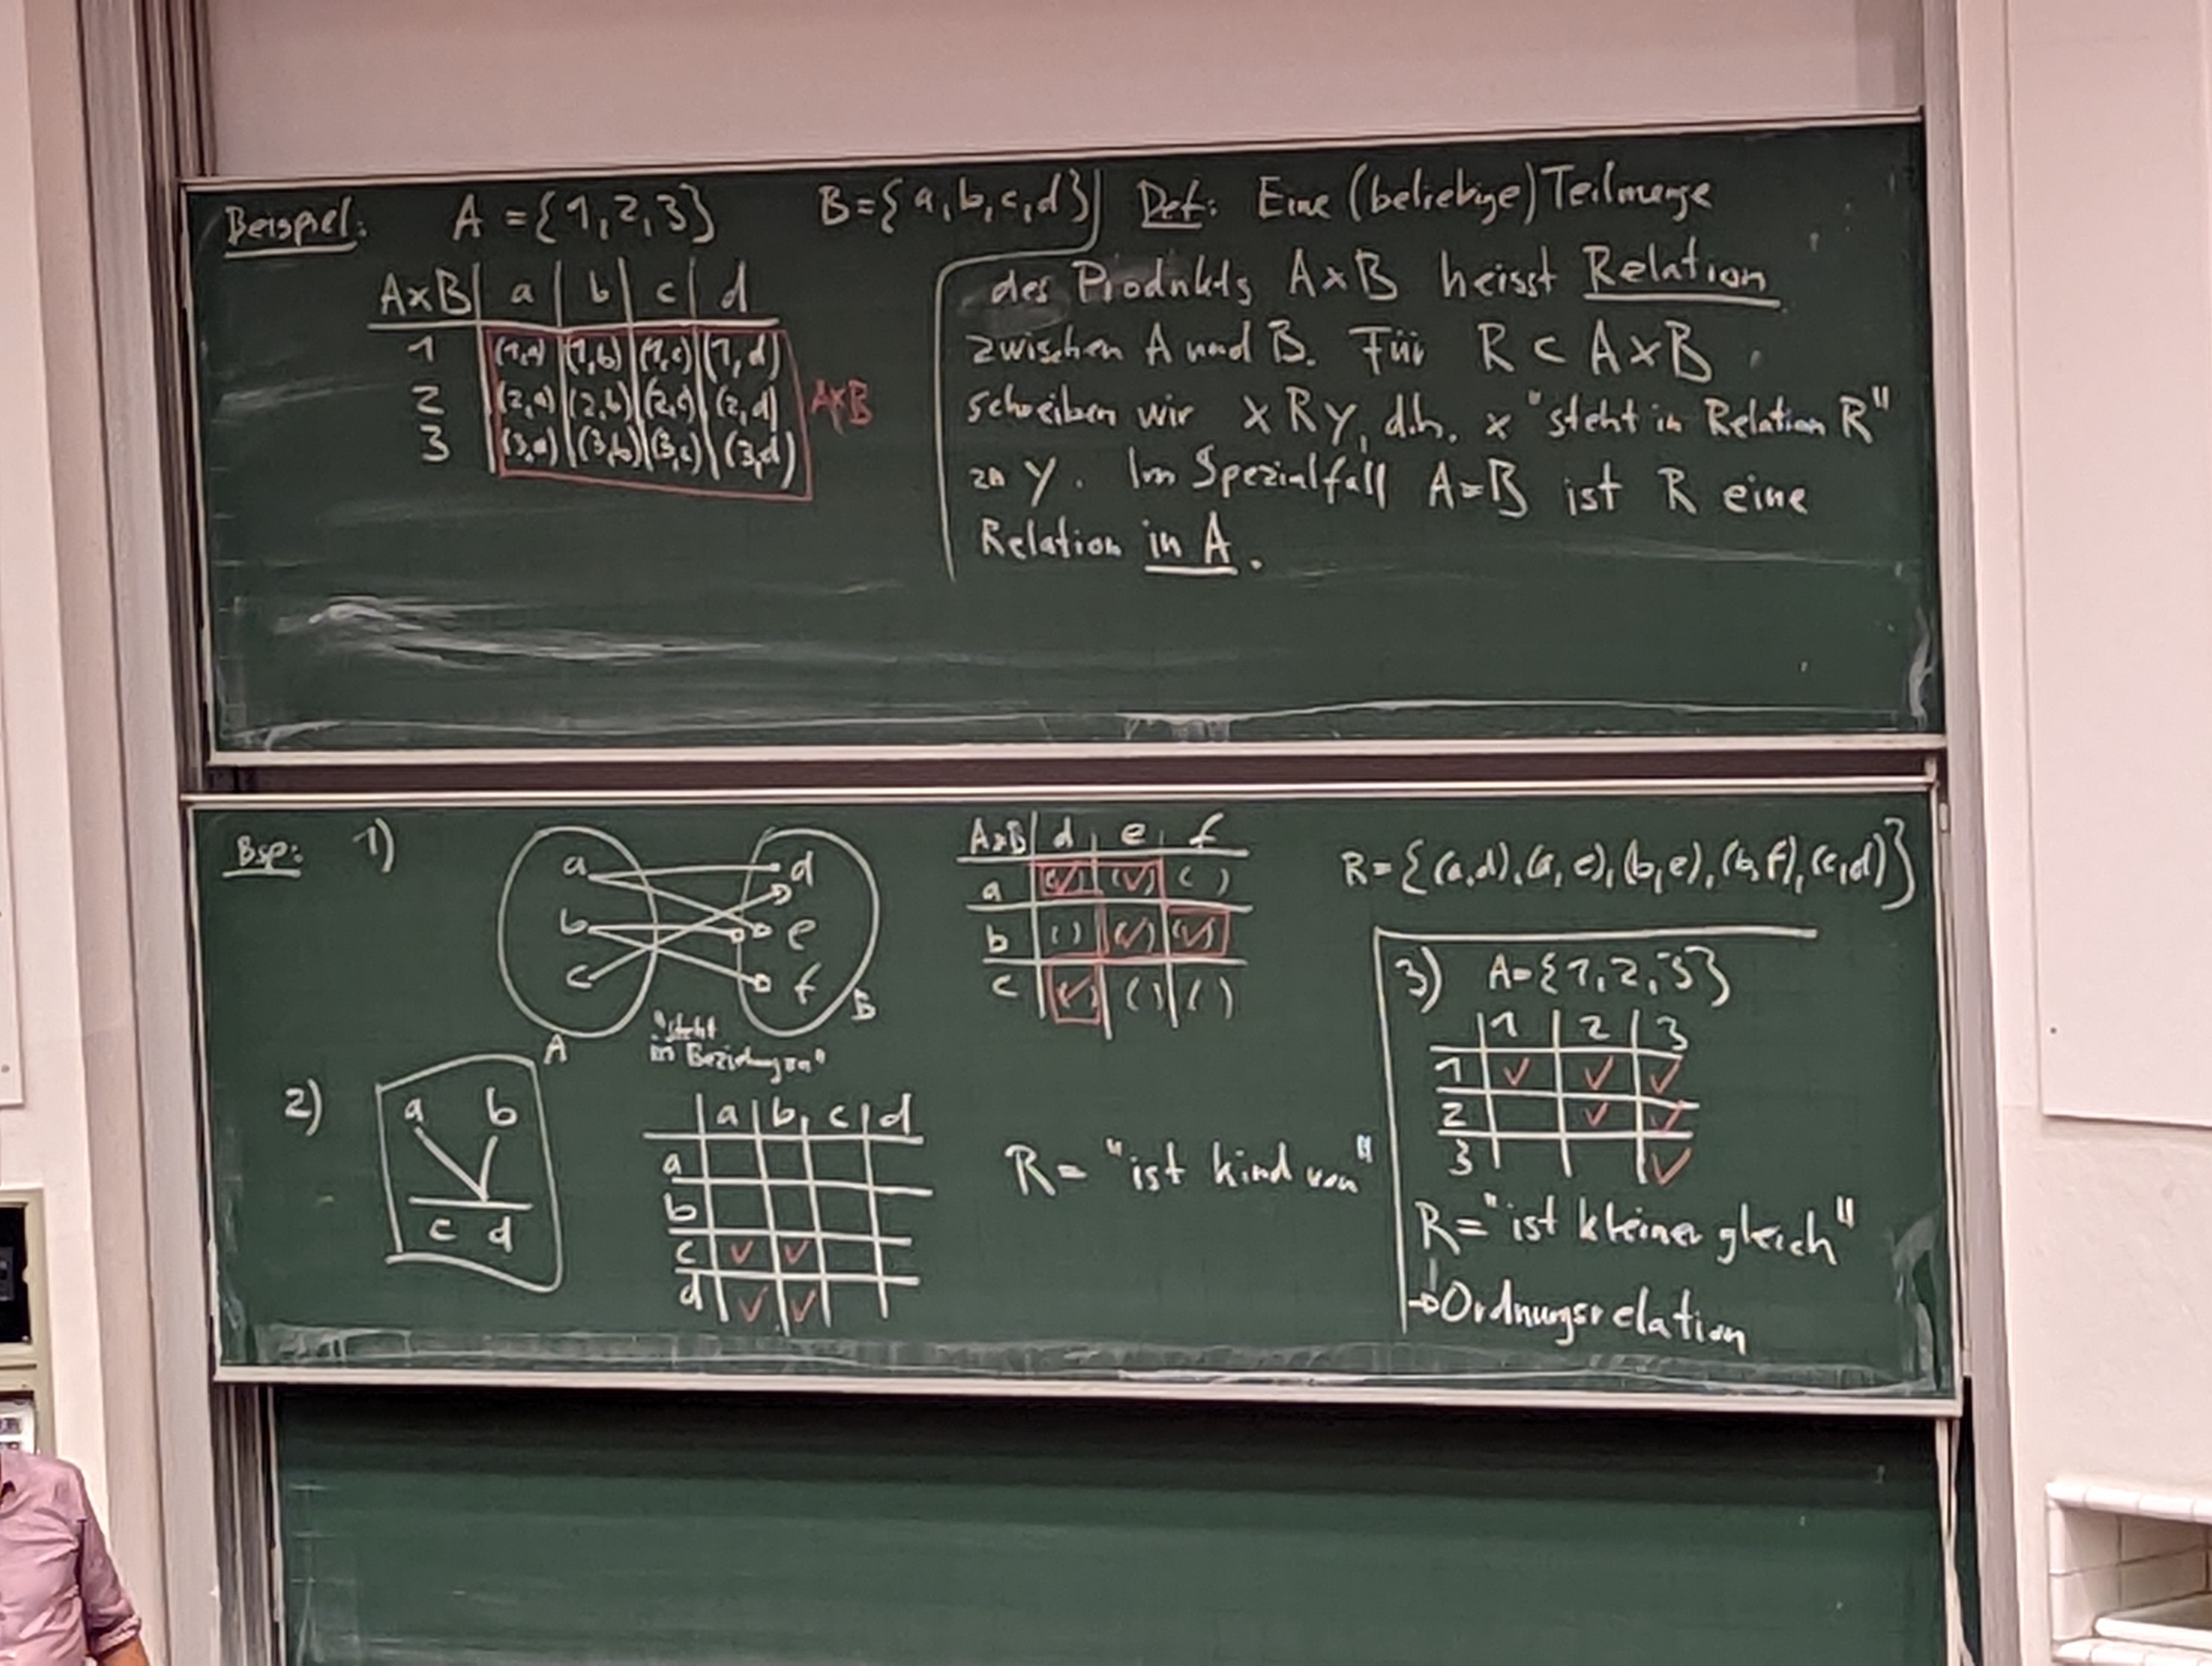 Beispiel: A = {1, 2, 3} B = {a, b, c, d}
A×B a b c d
1 (1,a) (1,b) (1,c) (1,d)
2 (2,a) (2,b) (2,c) (2,d)
3 (3,a) (3,b) (3,c) (3,d)
A×B
Def: Eine (beliebige) Teilmenge
des Produkts A×B heisst Relation
zwischen A und B. Für R ⊂ A×B
schreiben wir x R y, d.h. x "steht in Relation R"
zu y. Im Spezialfall A=B ist R eine
Relation in A.
Bsp: 1)
a d
b e
c f
A B
"steht
in Beziehung zu"
A×B d e f
a (✓) (✓) ( )
b ( ) (✓) (✓)
c (✓) ( ) ( )
R = {(a,d), (a,e), (b,e), (b,f), (c,d)}
2)
a b
c d
a b c d
a
b
c ✓ ✓
d ✓ ✓
R = "ist kind von"
3) A = {1, 2, 3}
1 2 3
1 ✓ ✓ ✓
2 ✓ ✓
3 ✓
R = "ist kleiner gleich"
→ Ordnungsrelation